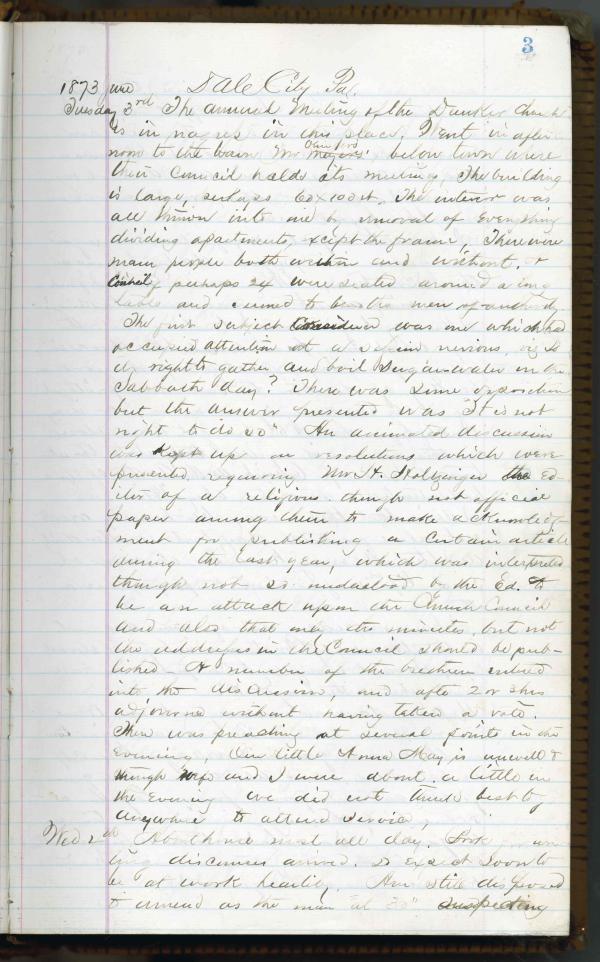 3
1873 June Dale City Pa.
Tuesday 3rd The annual Meeting of the Dunker church
is in progress in this place, Went in after
noon to the barn Mr below town were
their Council holds its meetings, The building
is large, perhaps 60 x 100 ft. The interior was
all thrown into one by removal of Everything
dividing apartments, except the frame, There were
many people both within and without, &
Council of perhaps 24 were seated around a long
table and seemed to be the men of authority
The first subject Considered was one which had
occupied attention at a session previous, viz Is
it right to gather and boil Sugar water on the
Sabbath day? There was some opposition
but the answer presented was "It is not
right to do so" An animated discussion
was Kept up on resolutions which were
presented requiring Mr H. Holsinger the Ed-
itor of a religious though not official
paper among them to make acknowledg-
ment for publishing a Certain article
during the last year, which was interpreted
though not so understood by the Ed. to
be an attack upon the Church Council
and also that only the minutes, but not
the addresses in the Council should be pub-
lished A number of the brethren entered
into the discussion, and after 2 or 3 hrs
adjourned without having taken a vote.
There was preaching at several points in the
evening, Our little Anna May is unwell &
though Wife and I were about a little in
the Evening we did not think best to go
anywhere to attend service,
Wed About house most all day.
discourses arrived. So Expect soon to
be at work heartily. Am still disposed
to amend as the man at suspecting